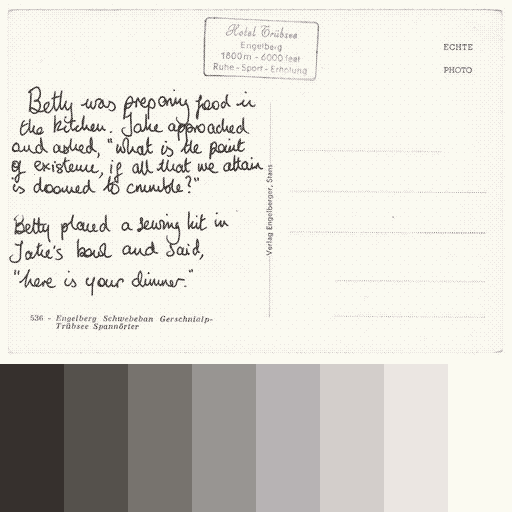 Hotel Trübsee
Engelberg
1800m - 6000 feet
Ruhe - Sport - Erholung
ECHTE
PHOTO
Betty was preparing food in
the kitchen. Jake approached
and asked, "what is the point
of existence, if all that we attain
is doomed to crumble?"
Betty placed a sewing kit in
Jake's bowl and said,
"here is your dinner."
Verlag Engelberger, Stans
536 - Engelberg Schwebeban Gerschnialp-
Trübsee Spannörter